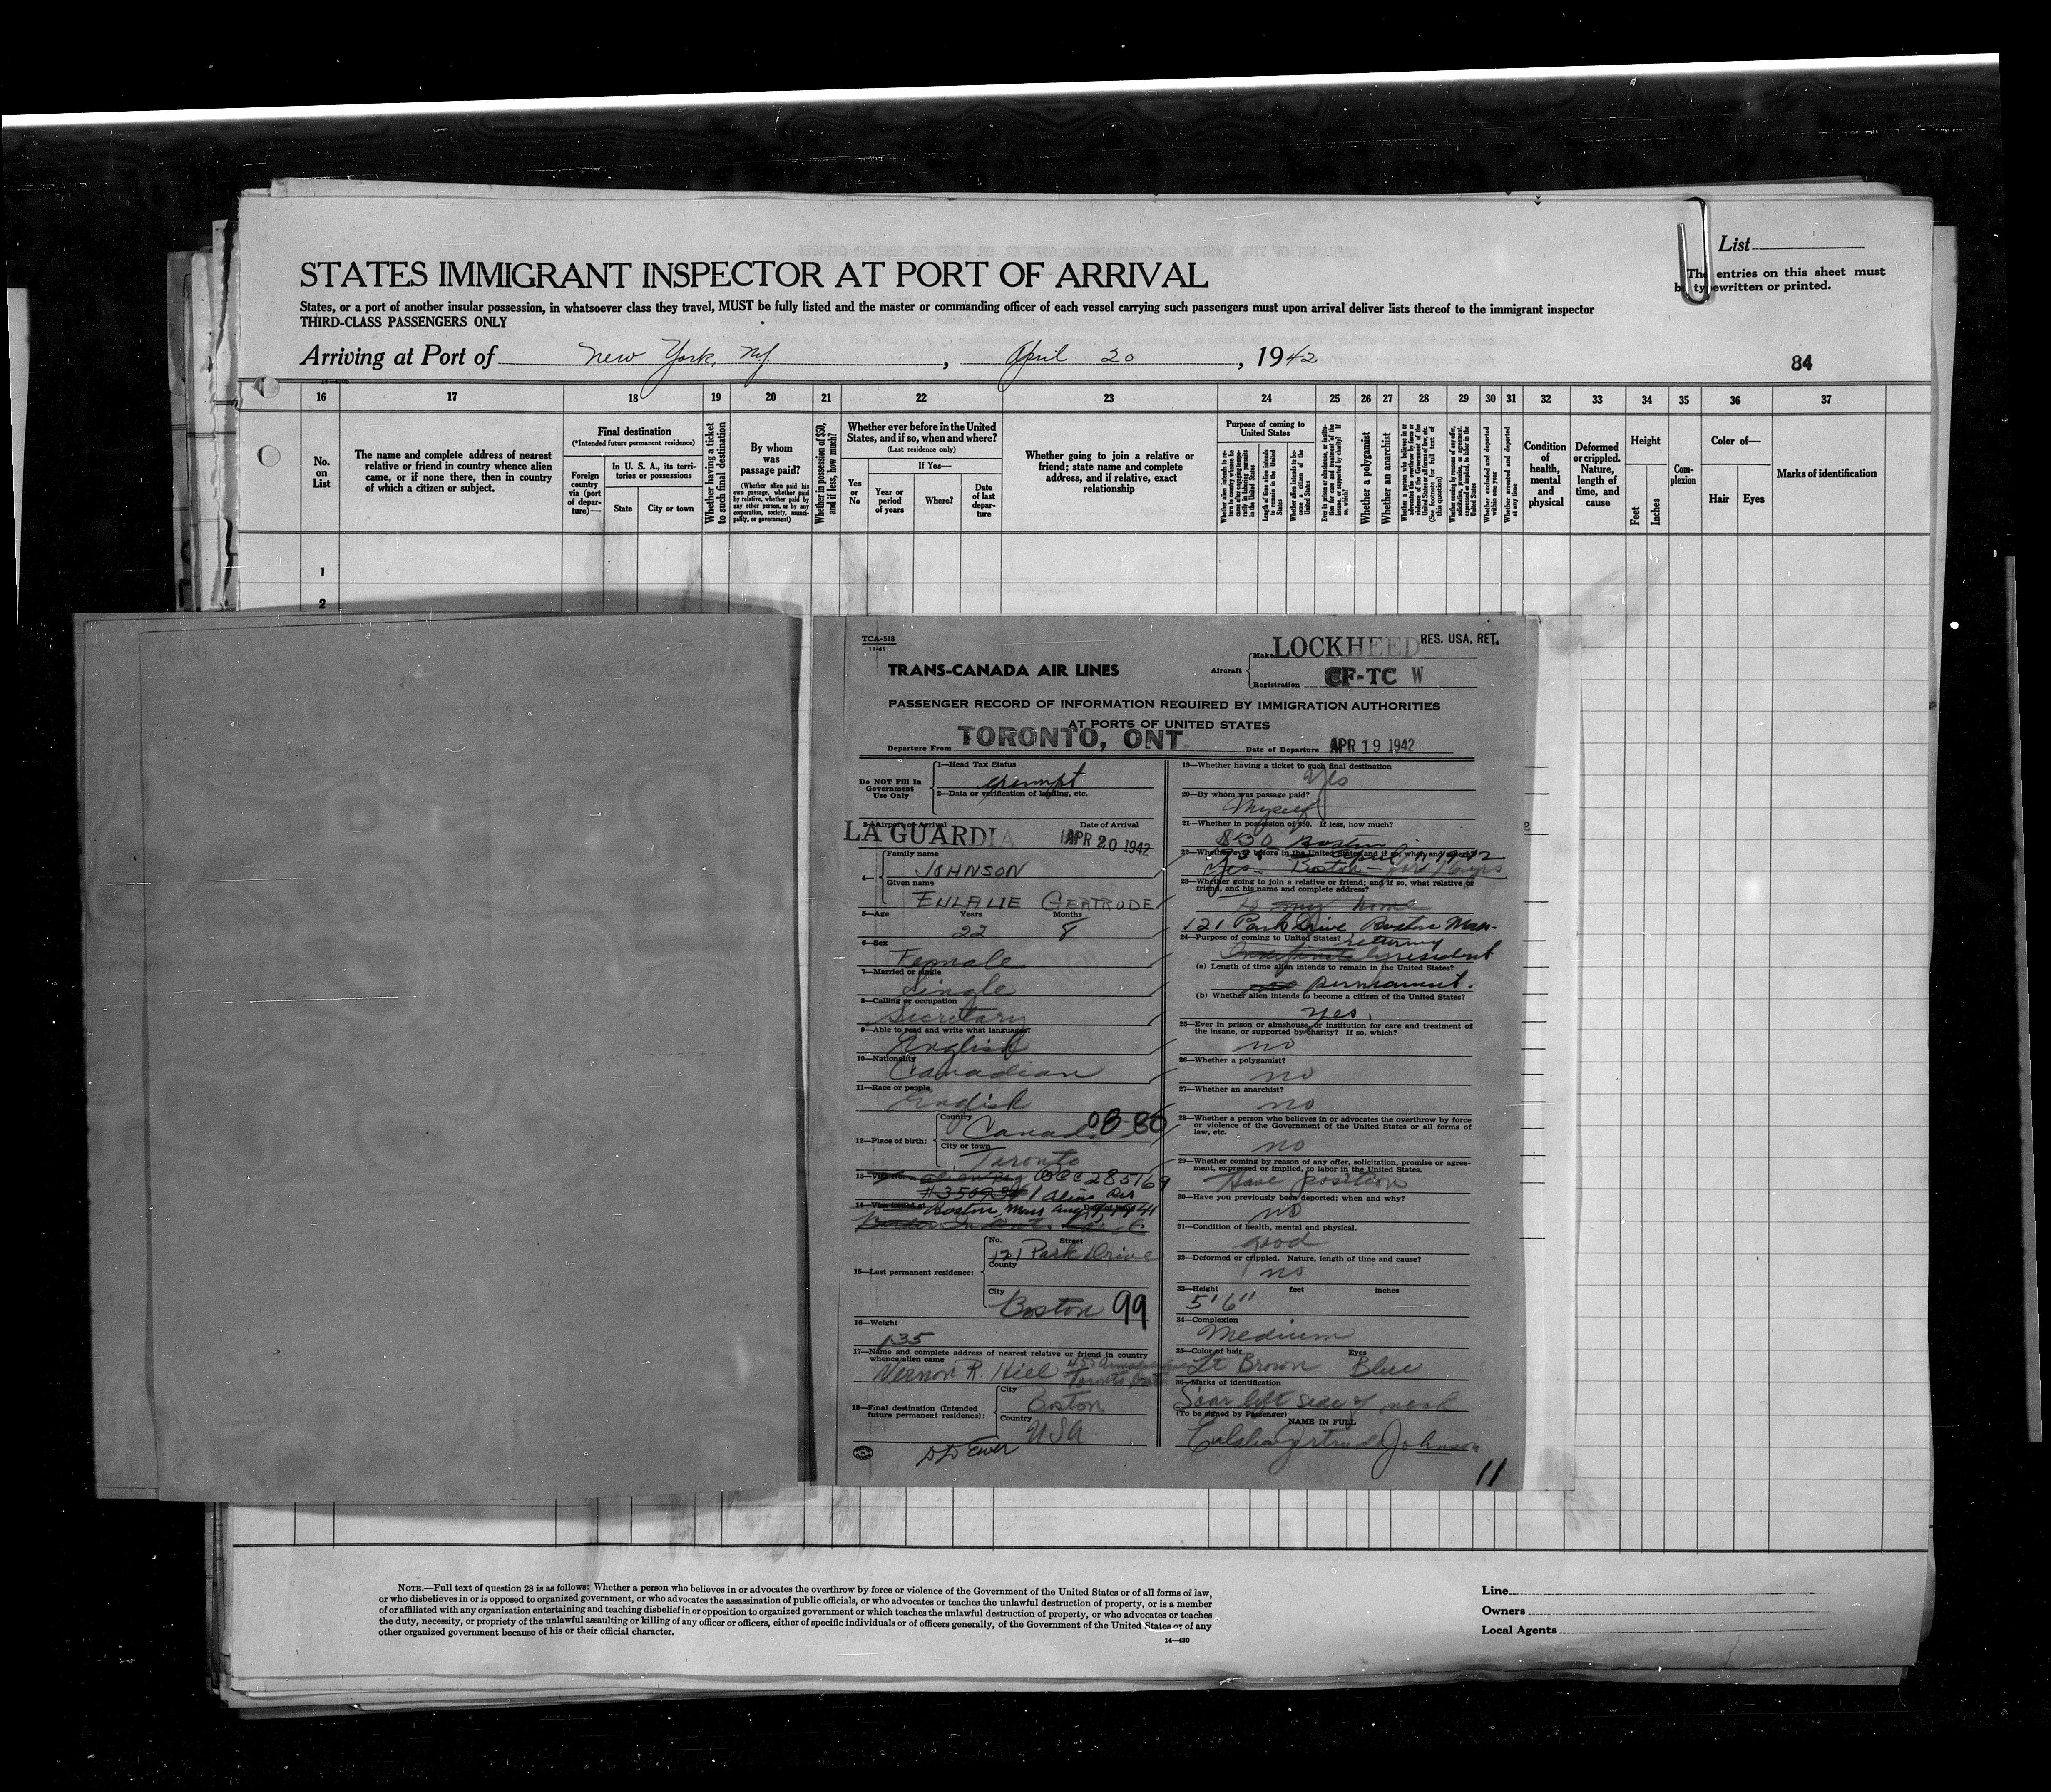 List
The entries on this sheet must
be typewritten or printed.
STATES IMMIGRANT INSPECTOR AT PORT OF ARRIVAL
States, or a port of another insular possession, in whatsoever class they travel, MUST be fully listed and the master or commanding officer of each vessel carrying such passengers must upon arrival deliver lists thereof to the immigrant inspector
THIRD-CLASS PASSENGERS ONLY
Arriving at Port of New York, NY, April 20, 1942
84
16 17 18 19 20 21 22 23 24 25 26 27 28 29 30 31 32 33 34 35 36 37
No. on List
The name and complete address of nearest
relative or friend in country whence alien
came, or if none there, then in country
of which a citizen or subject.
Final destination
(*Intended future permanent residence)
Foreign country via (port of departure)—
In U. S. A., its territories or possessions
State
City or town
Whether having a ticket to such final destination
By whom was passage paid?
(Whether alien paid his own passage, whether paid by relative, whether paid by any other person, or by any corporation, society, municipality, or government)
Whether in possession of $50, and if less, how much?
Whether ever before in the United States, and if so, when and where?
(Last residence only)
Yes or No
If Yes—
Year or period of years
Where?
Date of last departure
Whether going to join a relative or
friend; state name and complete
address, and if relative, exact
relationship
Purpose of coming to United States
Length of time alien intends to remain in the United States
Whether a polygamist
Whether an anarchist
Whether excluded and deported within one year
Whether arrested and deported at any time
Condition of health, mental and physical
Deformed or crippled. Nature, length of time, and cause
Height
Feet
Inches
Complexion
Color of—
Hair
Eyes
Marks of identification
1
2
TCA-518
11-41
TRANS-CANADA AIR LINES
Aircraft
Make LOCKHEED
RES. USA. RET.
Registration CF-TC W
PASSENGER RECORD OF INFORMATION REQUIRED BY IMMIGRATION AUTHORITIES
AT PORTS OF UNITED STATES
Departure From TORONTO, ONT.
Date of Departure APR 19 1942
Do NOT Fill In Government Use Only
1—Head Tax Status
exempt
2—Data or verification of landing, etc.
3—Airport of Arrival
Date of Arrival
LA GUARDIA APR 20 1942
4—
Family name
JOHNSON
Given name
EULALIE GERTRUDE
5—Age Years Months
22 8
6—Sex
Female
7—Married or single
Single
8—Calling or occupation
Secretary
9—Able to read and write what languages?
English
10—Nationality
Canadian
11—Race or people
English
12—Place of birth:
Country
Canada
City or town
Toronto
13—Visa No.
14—Visa issued at
Boston, Mass
15—Last permanent residence:
No. Street
121 Park Drive
County
City
Boston 99
16—Weight
135
17—Name and complete address of nearest relative or friend in country
whence alien came
Vernon R. Hill
18—Final destination (Intended
future permanent residence):
City
Boston
Country
USA
19—Whether having a ticket to such final destination
Yes
20—By whom was passage paid?
Myself
21—Whether in possession of $50. If less, how much?
$30
22—Whether ever before in the United States, and if so, when and where?
Yes - Boston
23—Whether going to join a relative or friend; and if so, what relative or
friend, and his name and complete address?
to my home
121 Park Drive Boston Mass.
24—Purpose of coming to United States?
returning
resident
(a) Length of time alien intends to remain in the United States?
permanent.
(b) Whether alien intends to become a citizen of the United States?
yes.
25—Ever in prison or almshouse, or institution for care and treatment of
the insane, or supported by charity? If so, which?
no
26—Whether a polygamist?
no
27—Whether an anarchist?
no
28—Whether a person who believes in or advocates the overthrow by force
or violence of the Government of the United States or all forms of
law, etc.
no
29—Whether coming by reason of any offer, solicitation, promise or agree-
ment, expressed or implied, to labor in the United States.
Have position
30—Have you previously been deported; when and why?
no
31—Condition of health, mental and physical.
good
32—Deformed or crippled. Nature, length of time and cause?
no
33—Height feet inches
5' 6"
34—Complexion
Medium
35—Color of hair Eyes
Lt Brown Blue
36—Marks of identification
Scar left side of neck
(To be signed by Passenger)
NAME IN FULL
Gertrude Johnson
11
NOTE.—Full text of question 28 is as follows: Whether a person who believes in or advocates the overthrow by force or violence of the Government of the United States or of all forms of law,
or who disbelieves in or is opposed to organized government, or who advocates the assassination of public officials, or who advocates or teaches the unlawful destruction of property, or is a member
of or affiliated with any organization entertaining and teaching disbelief in or opposition to organized government or which teaches the unlawful destruction of property, or who advocates or teaches
the duty, necessity, or propriety of the unlawful assaulting or killing of any officer or officers, either of specific individuals or of officers generally, of the Government of the United States or of any
other organized government because of his or their official character.
14—430
Line
Owners
Local Agents